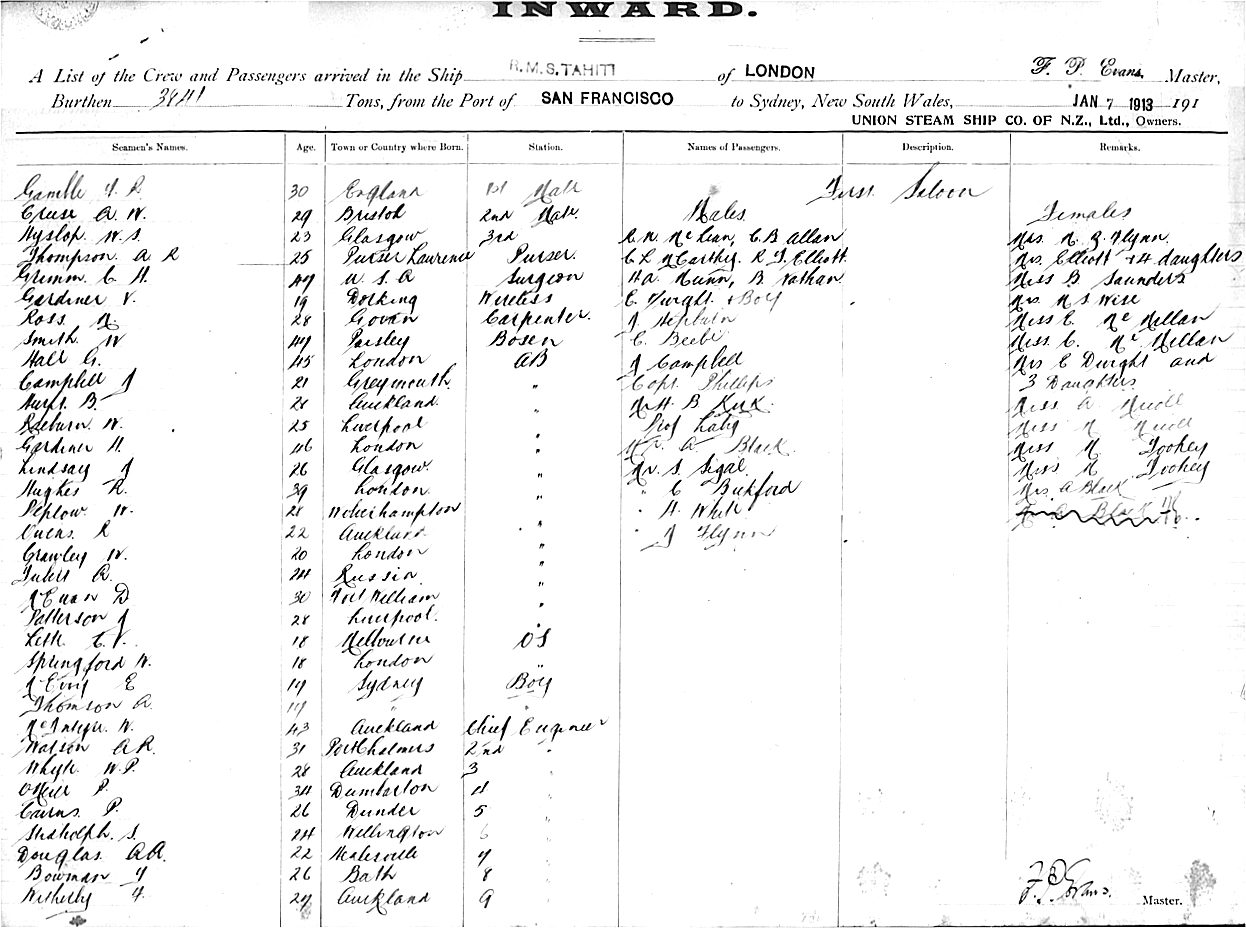 INWARD.
A List of the Crew and Passengers arrived in the Ship R.M.S. TAHITI of LONDON F. P. Evans, Master,
Burthen 3841 Tons, from the Port of SAN FRANCISCO to Sydney, New South Wales, JAN 7 1913 191
UNION STEAM SHIP CO. OF N.Z., Ltd., Owners.
Seamen's Names. Age. Town or Country where Born. Station. Names of Passengers. Description. Remarks.
Gamble 30 England 1st Mate First Saloon
Cruse A. W. 29 Bristol 2nd Mate Males Females
Hyslop. W. S. 23 Glasgow 3rd C. B Allan Mrs Flynn.
Thompson. A R 25 Lawrence Purser. C L McCarthy. Elliott Mrs. Elliott + 4 daughters
Grimm. C H. 49 U. S. A Surgeon HA. Nunn, B Nathan Miss B Saunders
Gardiner V. 19 Dorking Wireless + Boy Mrs Wise
Ross 28 Govan Carpenter. J Hepburn Miss E. McMillan
Smith W 44 Paisley Bosen C. Beebe Miss. C. McMillan
Hall G. 45 London AB J Campbell Mrs E Dwight and
Campbell J 21 Greymouth " Capt. Phillips 3 Daughters
B. 28 Auckland. " B. Kirk. Miss A Nicoll
Raeburn W. 25 Liverpool " Prof Miss Nicoll
Gardiner H. 46 London " Mr. A. Black. Miss Toohey
Lindsay J 26 Glasgow. " Mr. S. Segal. Miss Toohey
Hughes R. 39 London. " " C Bickford Mrs. A Black
Peplow. W. 28 Wolverhampton " " H. White Black
Owens R 22 Auckland. " " J Flynn
Crawley W. 20 London "
A. 24 Russia. "
McEwan D 30 Fort William "
Patterson J 28 Liverpool. "
Leth. C. V. 18 Melbourne OS
Springford W. 18 London "
E 14 Sydney Boy
Thomson A. 14 " "
McIntyre W. 43 Auckland Chief Engineer
Watson A R. 31 Port Chalmers 2nd "
Whyte W. P. 28 Auckland 3 "
O'Neill P. 34 Dumbarton 4 "
Cairns. P. 26 Dundee 5 "
S. 24 Wellington 6 "
Douglas. A. A. 22 7 "
Bowman J 26 Bath 8 "
Witherby F. 24 Auckland 9
F. P. Evans. Master.